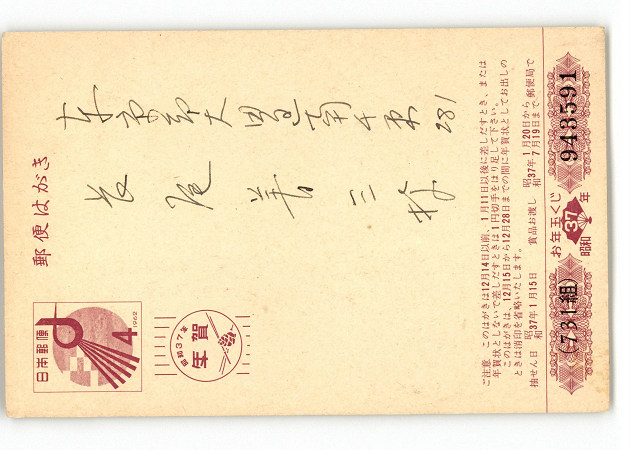 郵便はがき
日本郵便
4
1962
昭和37年
年賀
東京都大田区南千束 281
三様
ご注意 このはがきは12月14日以前、1月11日以後に差しだすとき、または
年賀状としないで差しだすときは1円切手をはり足して下さい。
このはがきは、12月15日から12月28日までの間に年賀状としてお出しの
ときは消印を省略いたします。
抽せん日 昭和37年1月15日 賞品お渡し 昭和37年1月20日から7月19日まで郵便局で
お年玉くじ
昭和37年
(731組)
943591